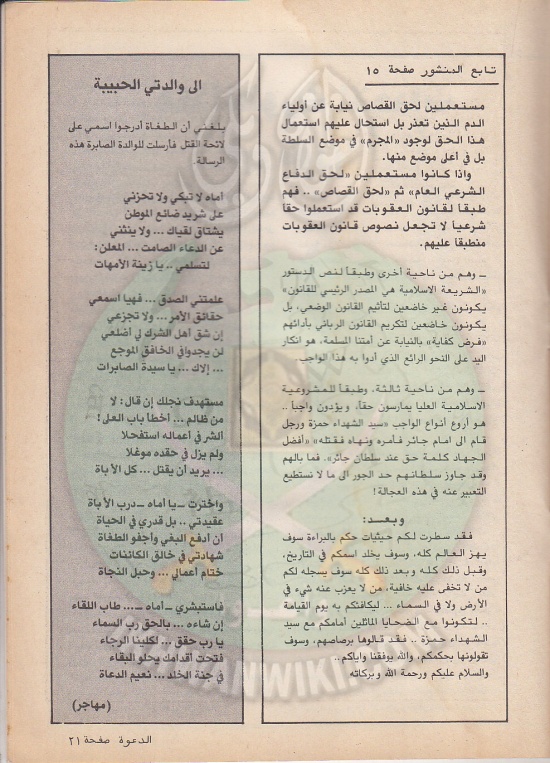 تابع المنشور صفحة ١٥
مستعملين لحق القصاص نيابة عن أولياء
الدم الذين تعذر بل استحال عليهم استعمال
هذا الحق لوجود «المجرم» في موضع السلطة
بل في أعلى موضع منها.
واذا كانوا مستعملين «لحق الدفاع
الشرعي العام» ثم «لحق القصاص» .. فهم
طبقاً لقانون العقوبات قد استعملوا حقاً
شرعياً لا تجعل نصوص قانون العقوبات
منطبقا عليهم.
ـ وهم من ناحية أخرى وطبقاً لنص الدستور
«الشريعة الاسلامية هي المصدر الرئيسي للقانون»
يكونون غير خاضعين لتأثيم القانون الوضعي، بل
يكونون خاضعين لتكريم القانون الرباني بأدائهم
«فرض كفاية» بالنيابة عن أمتنا المسلمة، هو انكار
اليد على النحو الرائع الذي أدوا به هذا الواجب.
ـ وهم من ناحية ثالثة، وطبقاً للمشروعية
الاسلامية العليا يمارسون حقاً، ويؤدون واجباً ..
هو أروع أنواع الواجب «سيد الشهداء حمزة ورجل
قام الى امام جائر فأمره ونهاه فقتله» «أفضل
الجهاد كلمة حق عند سلطان جائر». فما بالهم
وقد جاوز سلطانهم حد الجور الى ما لا نستطيع
التعبير عنه في هذه العجالة!
وبعد:
فقد سطرت لكم حيثيات حكم بالبراءة سوف
يهز العالم كله، وسوف يخلد اسمكم في التاريخ،
وقبل ذلك كله وبعد ذلك كله سوف يسجله لكم
من لا تخفى عليه خافية، من لا يعزب عنه شيء في
الأرض ولا في السماء ... ليكافئكم به يوم القيامة
.. لتكونوا مع الضحايا الماثلين أمامكم مع سيد
الشهداء حمزة .. فقد قالوها برصاصهم، وسوف
تقولونها بحكمكم، والله يوفقنا واياكم..
والسلام عليكم ورحمة الله وبركاته
الى والدتي الحبيبة
بلغني أن الطغاة أدرجوا اسمي على
لائحة القتل فأرسلت للوالدة الصابرة هذه
الرسالة.
أماه لا تبكي ولا تحزني
على شريد ضائع الموطن
يشتاق لقياك ... ولا ينثني
عن الدعاء الصامت ... المعلن:
لتسلمي .. يا زينة الأمهات
علمتني الصدق ... فهيا اسمعي
حقائق الأمر ... ولا تجزعي
إن شق أهل الشرك لي أضلعي
لن يجدوافي الخافق الموجع
... إلاك ... يا سيدة الصابرات
مستهدف نجلك إن قال: لا
من ظالم ... أخطأ باب العلى!
ألشر في أعماله استفحلا
ولم يزل في حقده موغلا
... يريد أن يقتل ... كل الأباة
واخترت ـ يا أماه ـ درب الأباة
عقيدتي .. بل قدري في الحياة
أن أدفع البغي وأجفو الطغاة
شهادتي في خالق الكائنات
ختام أعمالي ... وحبل النجاة
فاستبشري ـ أماه ـ... طاب اللقاء
إن شاءه ... بالحق رب السماء
يا رب حقق ... لكلينا الرجاء
فتحت أقدامك يحلو البقاء
في جنة الخلد ... نعيم الدعاة
(مهاجر)
الدعوة صفحة ٢١